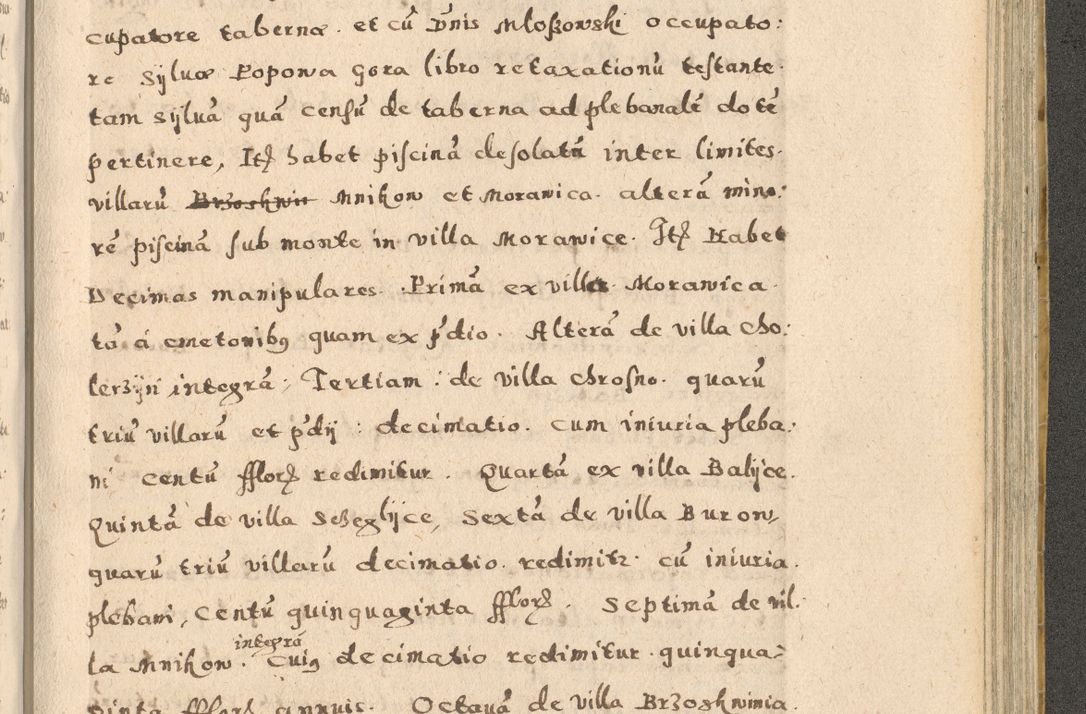 cupatore tabernæ. et cũ Dnis Mloßowski occupato:
re Sylvæ Popowa Gora libro retaxationũ testante.
tam sylvã quã censũ de taberna ad plebanalẽ dotẽ
pertinere, Itẽ habet piscinã desolatã inter limites.
villarũ Brzoskwin Mnikow et Morawica. alterã mino:
rẽ piscinã sub monte in villa Morawice. Itẽ Habet
Decimas manipulares. Primã ex villa Morawica.
tã á cmetonibꝯ quam ex p̃dio. Alterã de villa Cho:
lerzyn integrã: Tertiam: de villa Chrosno. quarũ
triũ villarũ et p̃dij: decimatio. cum iniuria pleba:
ni centũ fflorꝝ redimitur. Quartã ex villa Balyce.
Quintã de villa Sczeglyce, Sextã de villa Burow,
quarũ triũ villarũ decimatio. redimitr. cũ iniuria.
plebani, centũ quinquaginta fflorꝝ. Septimã de vil.
la Mnikow. integrã Cuiꝯ decimatio redimitur. quinqua:
ginta fflorꝝ annuis. Octavã de villa Brzoskwinia.